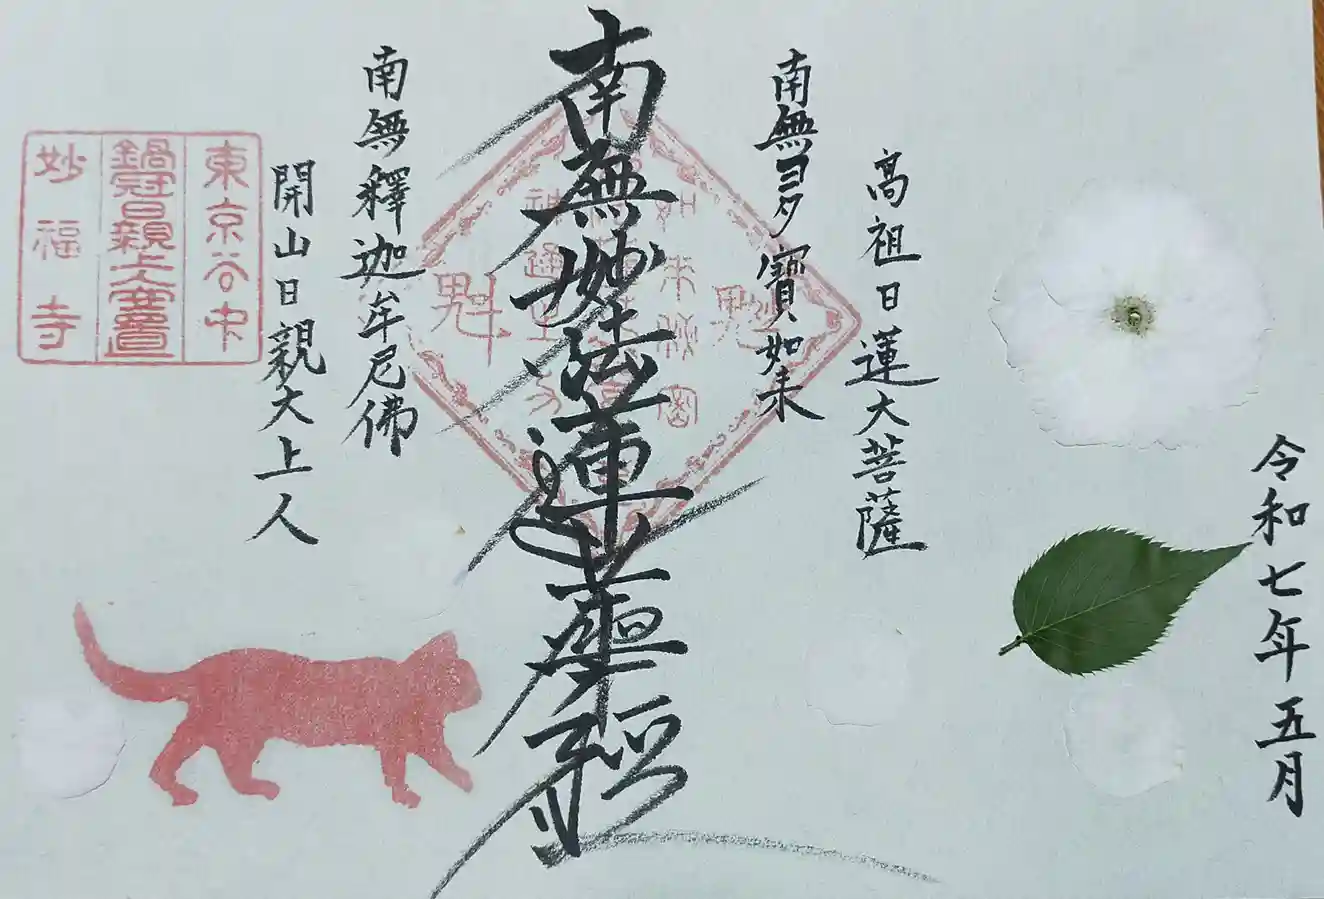 令和七年五月
高祖日蓮大菩薩
南無多寶如来
南無妙法蓮華経
南無釋迦牟尼佛
開山日親大上人
如来秘密
神通之力
魁
東京谷中
鍋冠日親上人霊
妙福寺